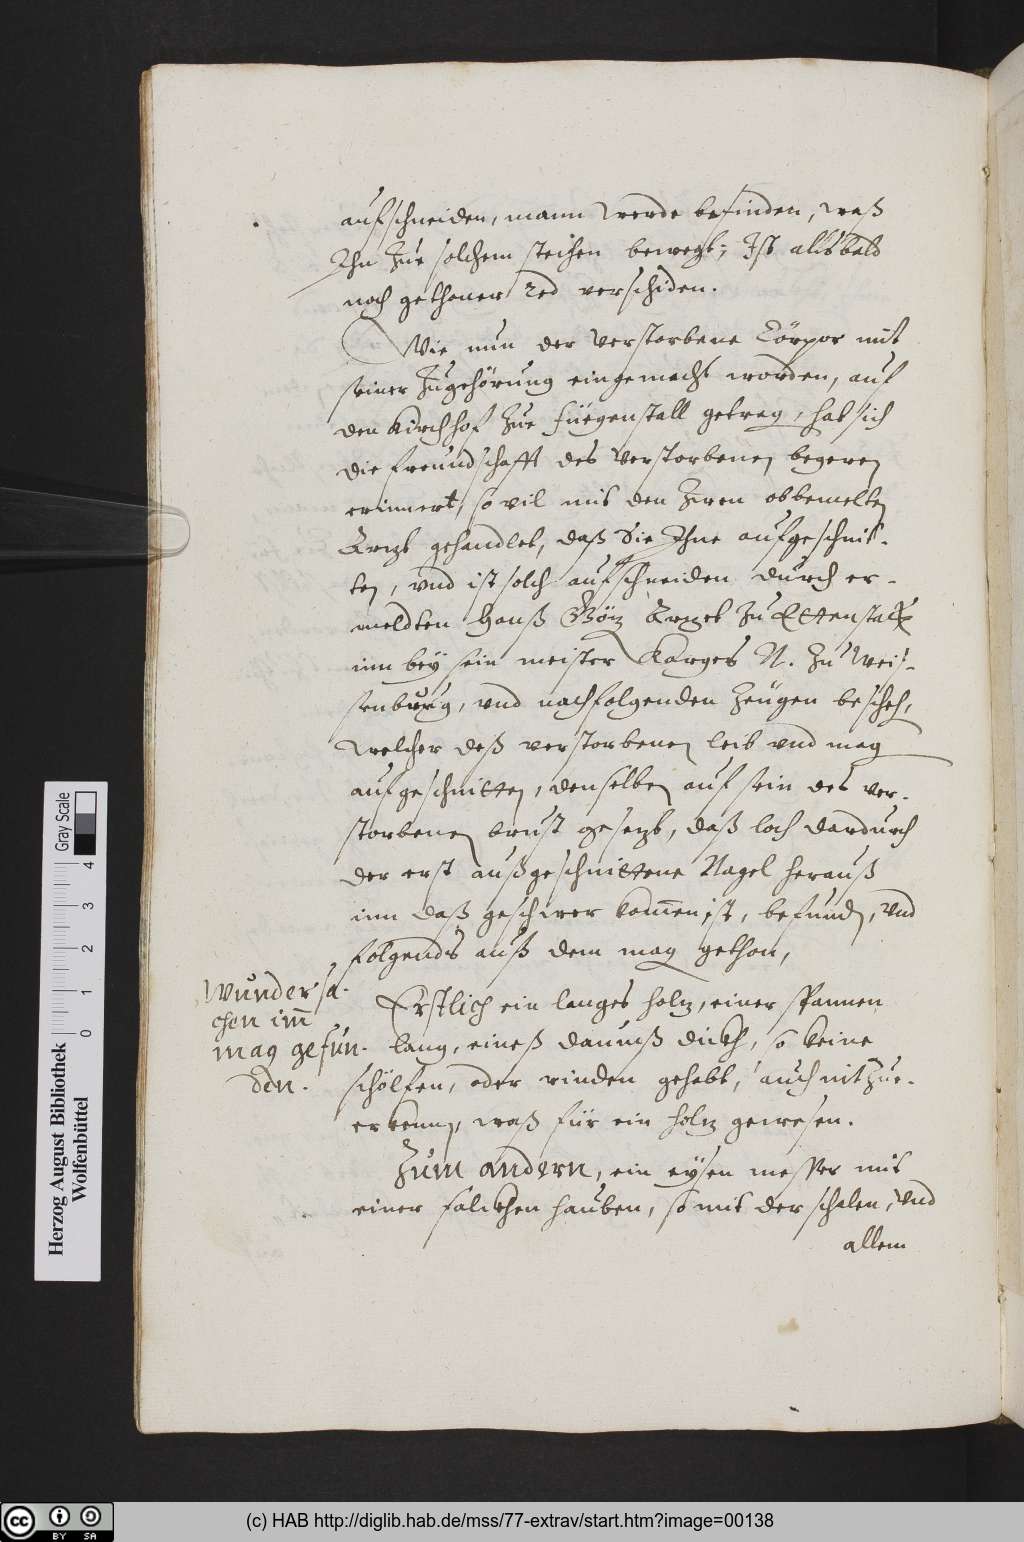 aufschneiden, mann werde befinden, waß
Ihn zue solchem stechen bewegt; Ist alsbald
noch gethoner Red verschiden.
Wie nun der verstorbene Cörper mit
seiner Zugehörung eingemacht worden, auf
den Kirchhof zue füegenstall getrag, hat sich
die freundschafft des verstorbenen begeren
erinnert, so vil mit den Irren obbemelten
Arzt gehandlet, daß Sie Ihne aufgeschnit-
ten, vnd ist solch aufschneiden durch er-
meldten Hanß Götz Arzet zu Ettenstatt
inn bey sein meister Karges N. zu Weis-
senburg, vnd nachfolgenden Zeugen bescheh,
welcher deß verstorbenen leib vnd mag
aufgeschnitten, denselben auf sein des ver-
storbenen brust gesezt, daß loch dardurch
der erst außgeschnittene Nagel herauß
inn daß geschwer kom̃en ist, befunden, vnd
folgends auß dem mag gethon,
Wundersa-
chen im̃
mag gefun-
den.
Erstlich ein langes holz, einer spannen
lang, eineß daumß dickh, so keine
schölfen, oder rinden gehabt, auch nit zue-
erkennen, waß für ein holz gewesen.
Zum andern, ein eysen messer mit
einer falckhen hauben, so mit der schalen, vnd
allem
Herzog August Bibliothek
Wolfenbüttel
0 1 2 3 4
Gray Scale
cc BY SA
(c) HAB http://diglib.hab.de/mss/77-extrav/start.htm?image=00138